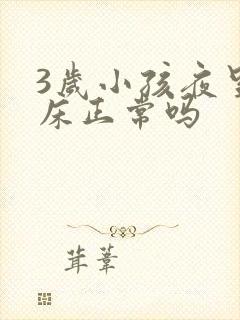 3岁小孩夜里
床正常吗
茸苇